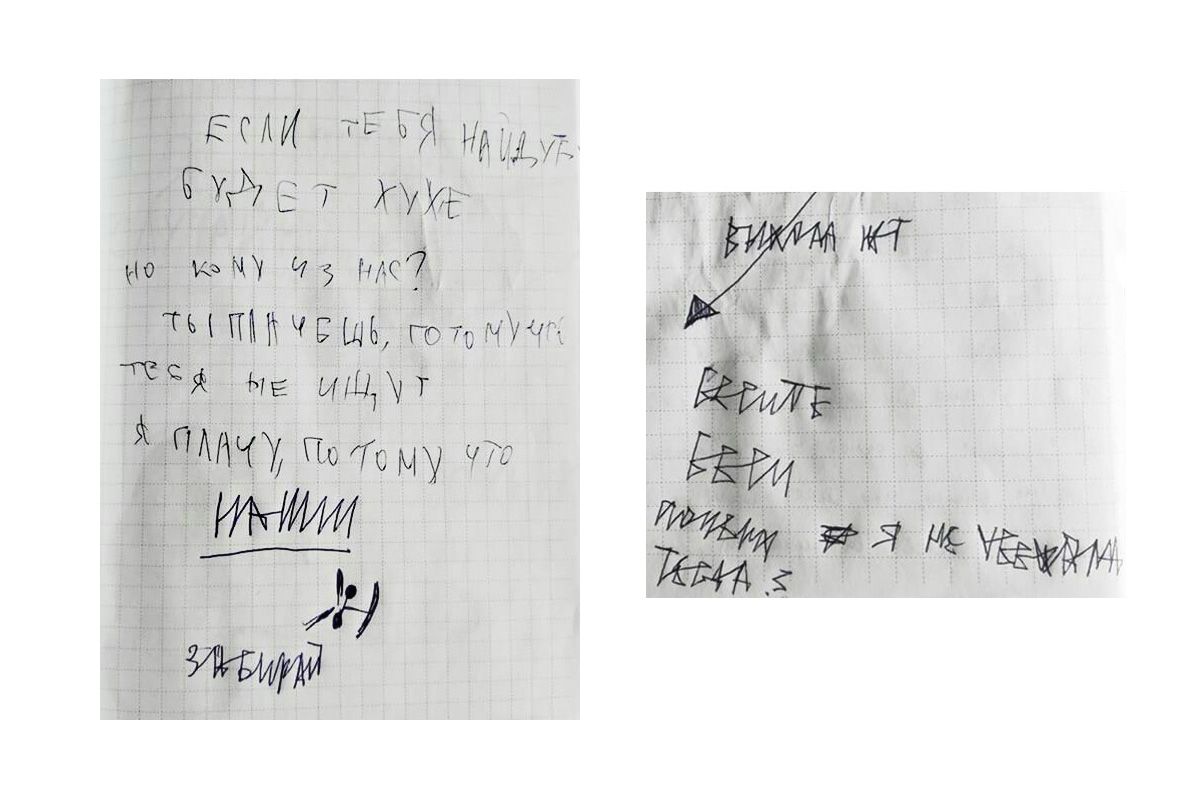 ЕСЛИ ТЕБЯ НАЙДУТ
БУДЕТ ХУХЕ
НО КОМУ ИЗ НАС?
ТЫ ПЛАЧЕШЬ, ПОТОМУ ЧТО
ТЕБЯ НЕ ИЩУТ
Я ПЛАЧУ, ПОТОМУ ЧТО
НАШЛИ
ЗАБИРАЙ
НЕТ
БЕРИТЕ
БЕРИ
Я НЕ